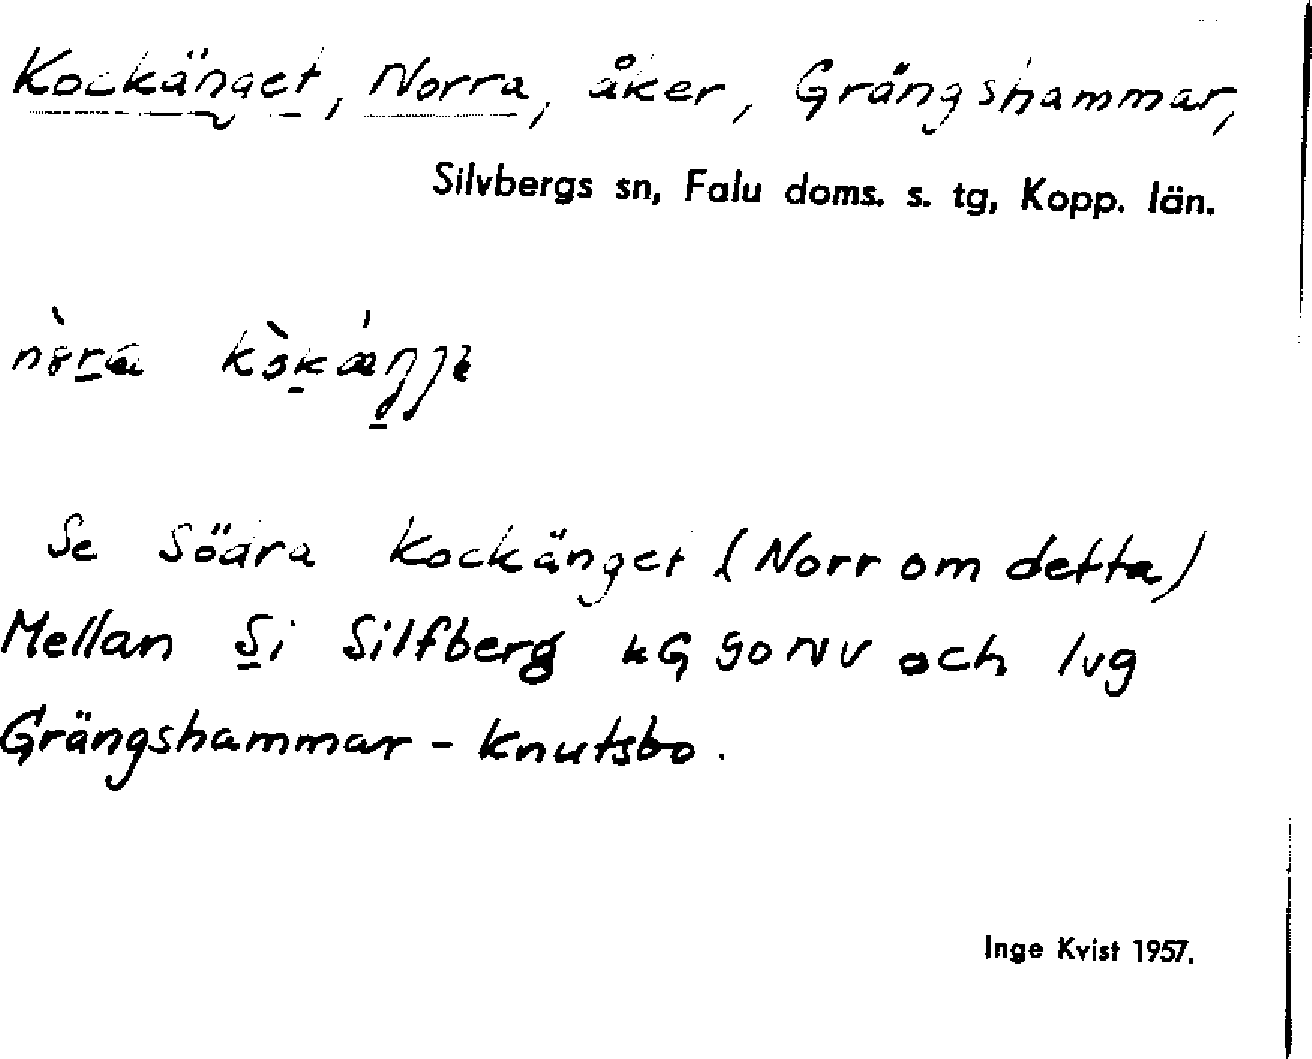 Kockänget, Norra, åker, Grängshammar,
Silvbergs sn, Falu doms. s. tg, Kopp. län.
Se Södra Kockänget (Norr om detta)
Mellan Si Silfberg kG 90 NV och lvg
Grängshammar - Knutsbo.
Inge Kvist 1957.